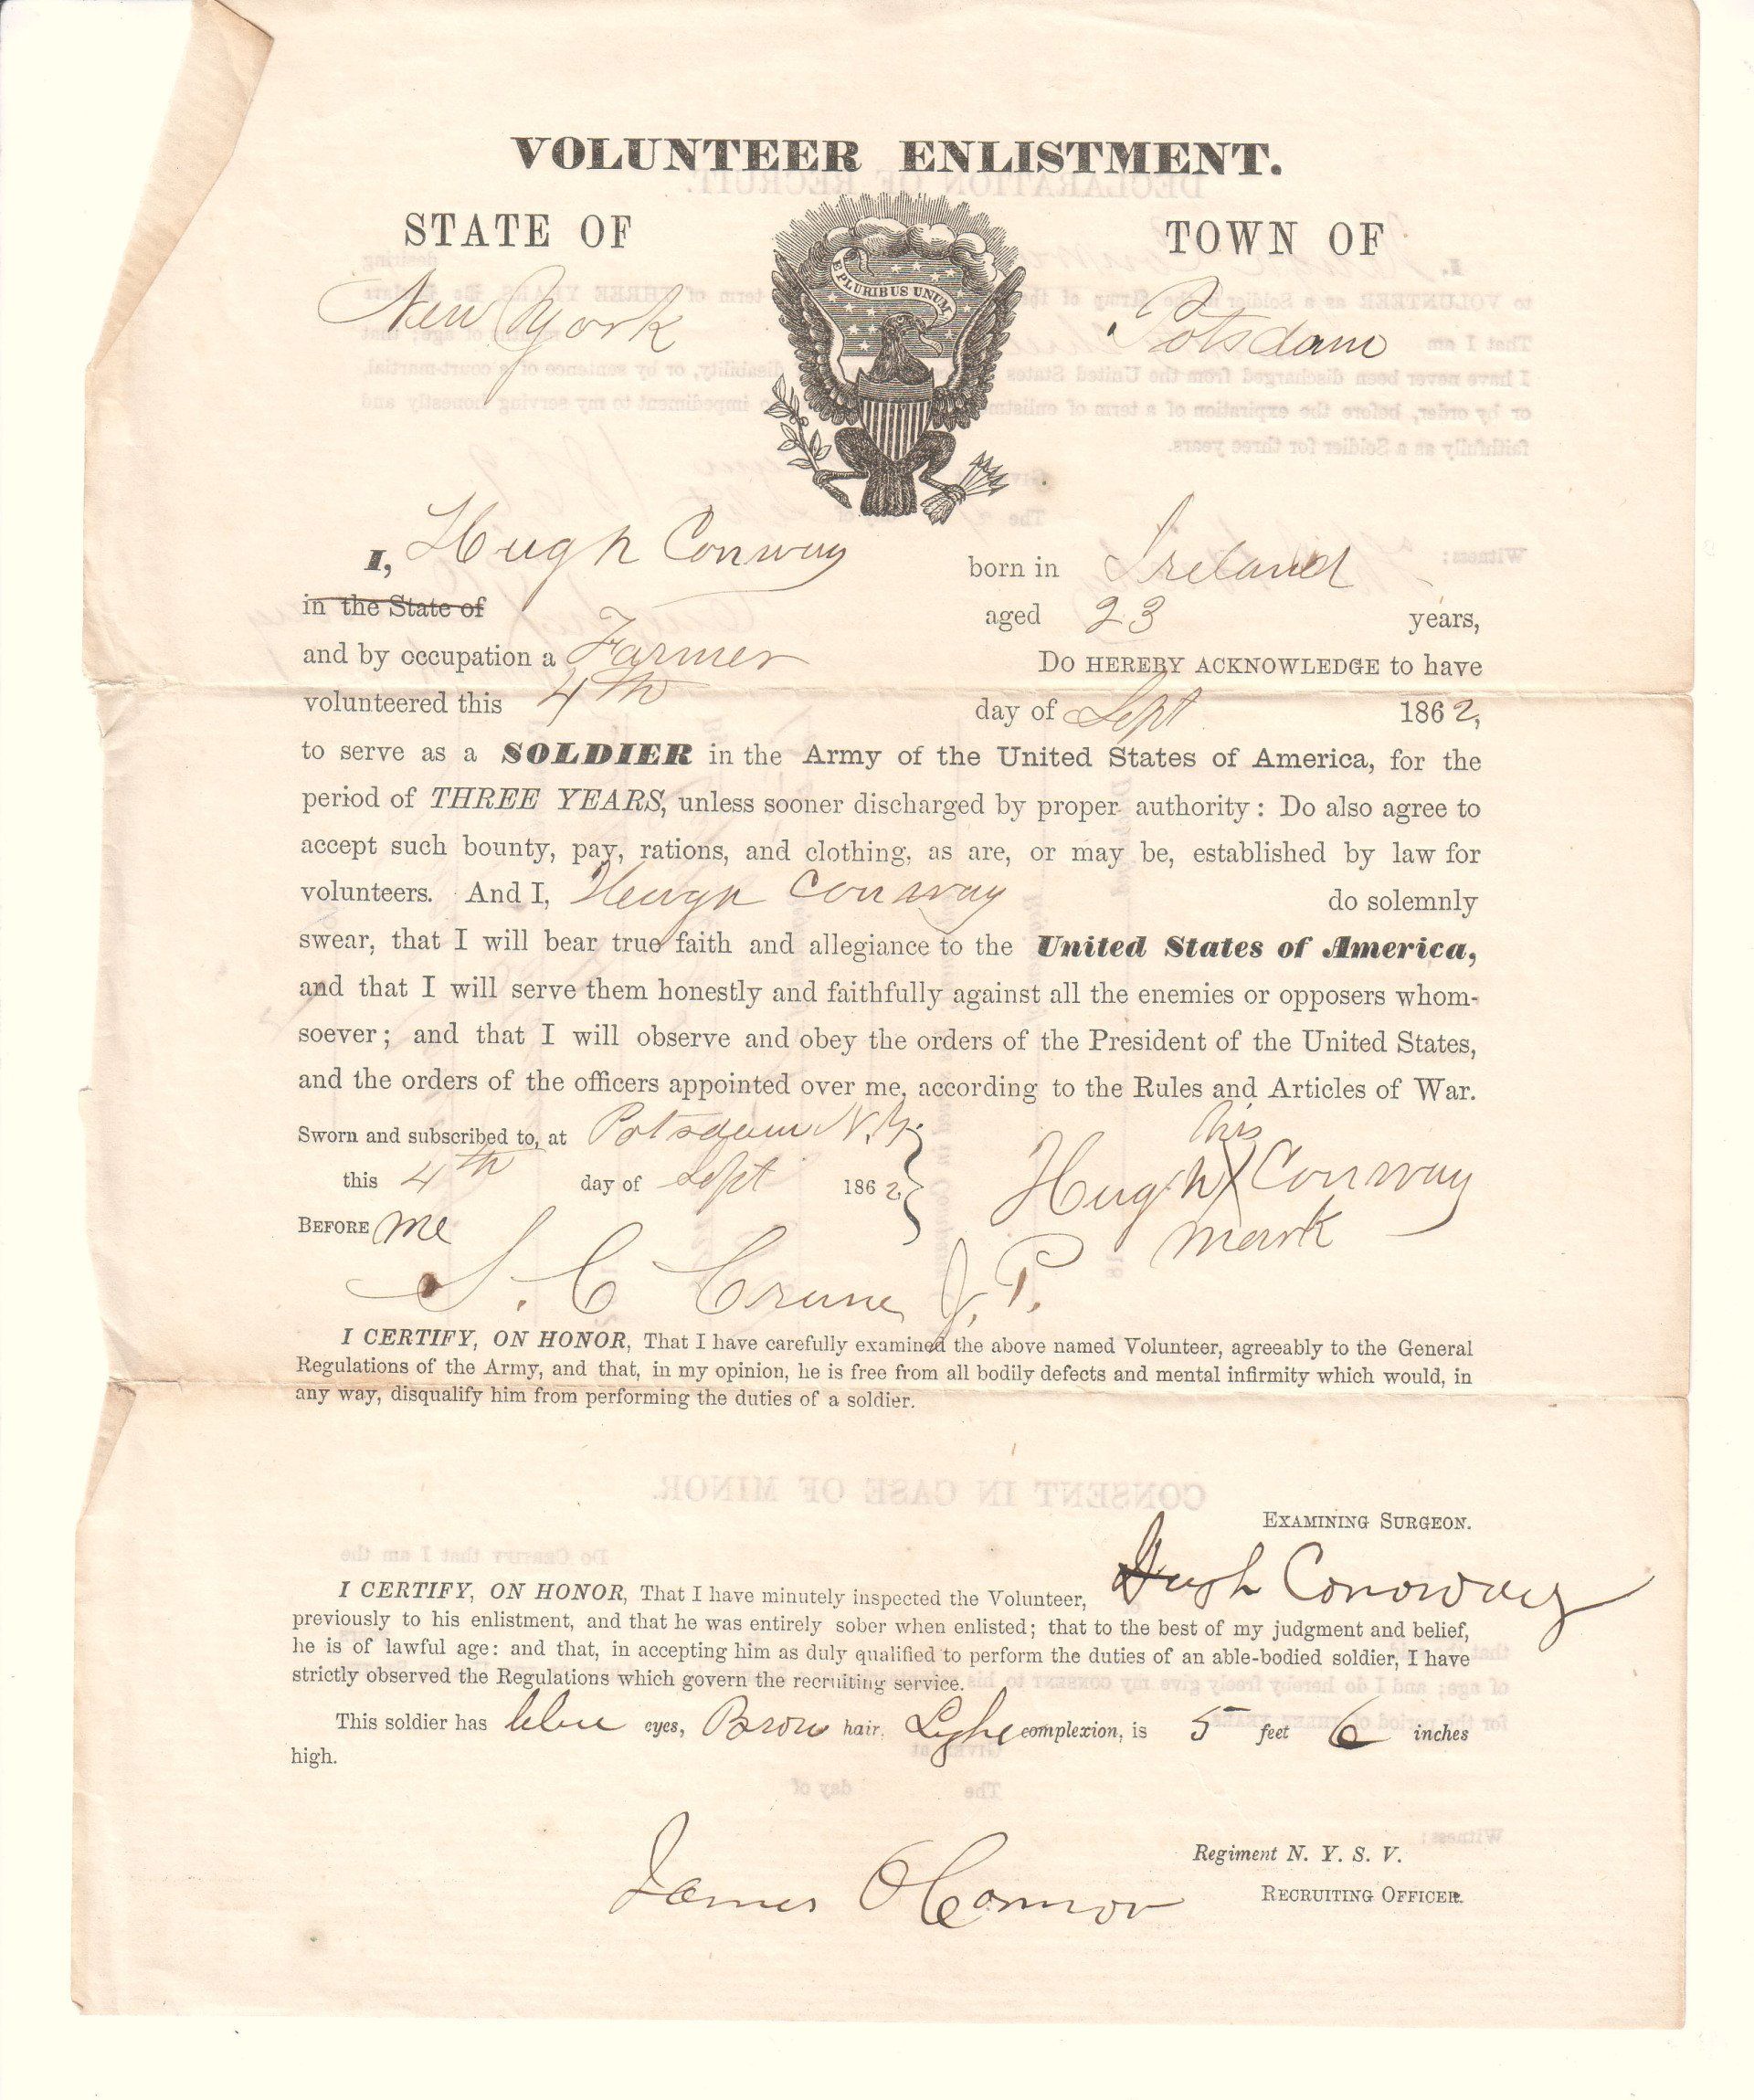 VOLUNTEER ENLISTMENT.
STATE OF TOWN OF
New York Potsdam
E PLURIBUS UNUM
I, Hugh Conway born in Ireland
in the State of aged 23 years,
and by occupation a Farmer DO HEREBY ACKNOWLEDGE to have
volunteered this 4th day of Sept 1862,
to serve as a SOLDIER in the Army of the United States of America, for the
period of THREE YEARS, unless sooner discharged by proper authority: Do also agree to
accept such bounty, pay, rations, and clothing, as are, or may be, established by law for
volunteers. And I, Heugh Conway do solemnly
swear, that I will bear true faith and allegiance to the United States of America,
and that I will serve them honestly and faithfully against all the enemies or opposers whom-
soever; and that I will observe and obey the orders of the President of the United States,
and the orders of the officers appointed over me, according to the Rules and Articles of War.
Sworn and subscribed to, at Potsdam N.Y. his
this 4th day of Sept 1862 Hugh X Conway
BEFORE me mark
S. C Crane J. P.
I CERTIFY, ON HONOR, That I have carefully examined the above named Volunteer, agreeably to the General
Regulations of the Army, and that, in my opinion, he is free from all bodily defects and mental infirmity which would, in
any way, disqualify him from performing the duties of a soldier.
CONSENT IN CASE OF MINOR.
EXAMINING SURGEON.
I CERTIFY, ON HONOR, That I have minutely inspected the Volunteer, Hugh Conoway
previously to his enlistment, and that he was entirely sober when enlisted; that to the best of my judgment and belief,
he is of lawful age: and that, in accepting him as duly qualified to perform the duties of an able-bodied soldier, I have
strictly observed the Regulations which govern the recruiting service.
This soldier has blue eyes, Brow hair, Lighe complexion, is 5 feet 6 inches
high.
Regiment N. Y. S. V.
James OConnor RECRUITING OFFICER.